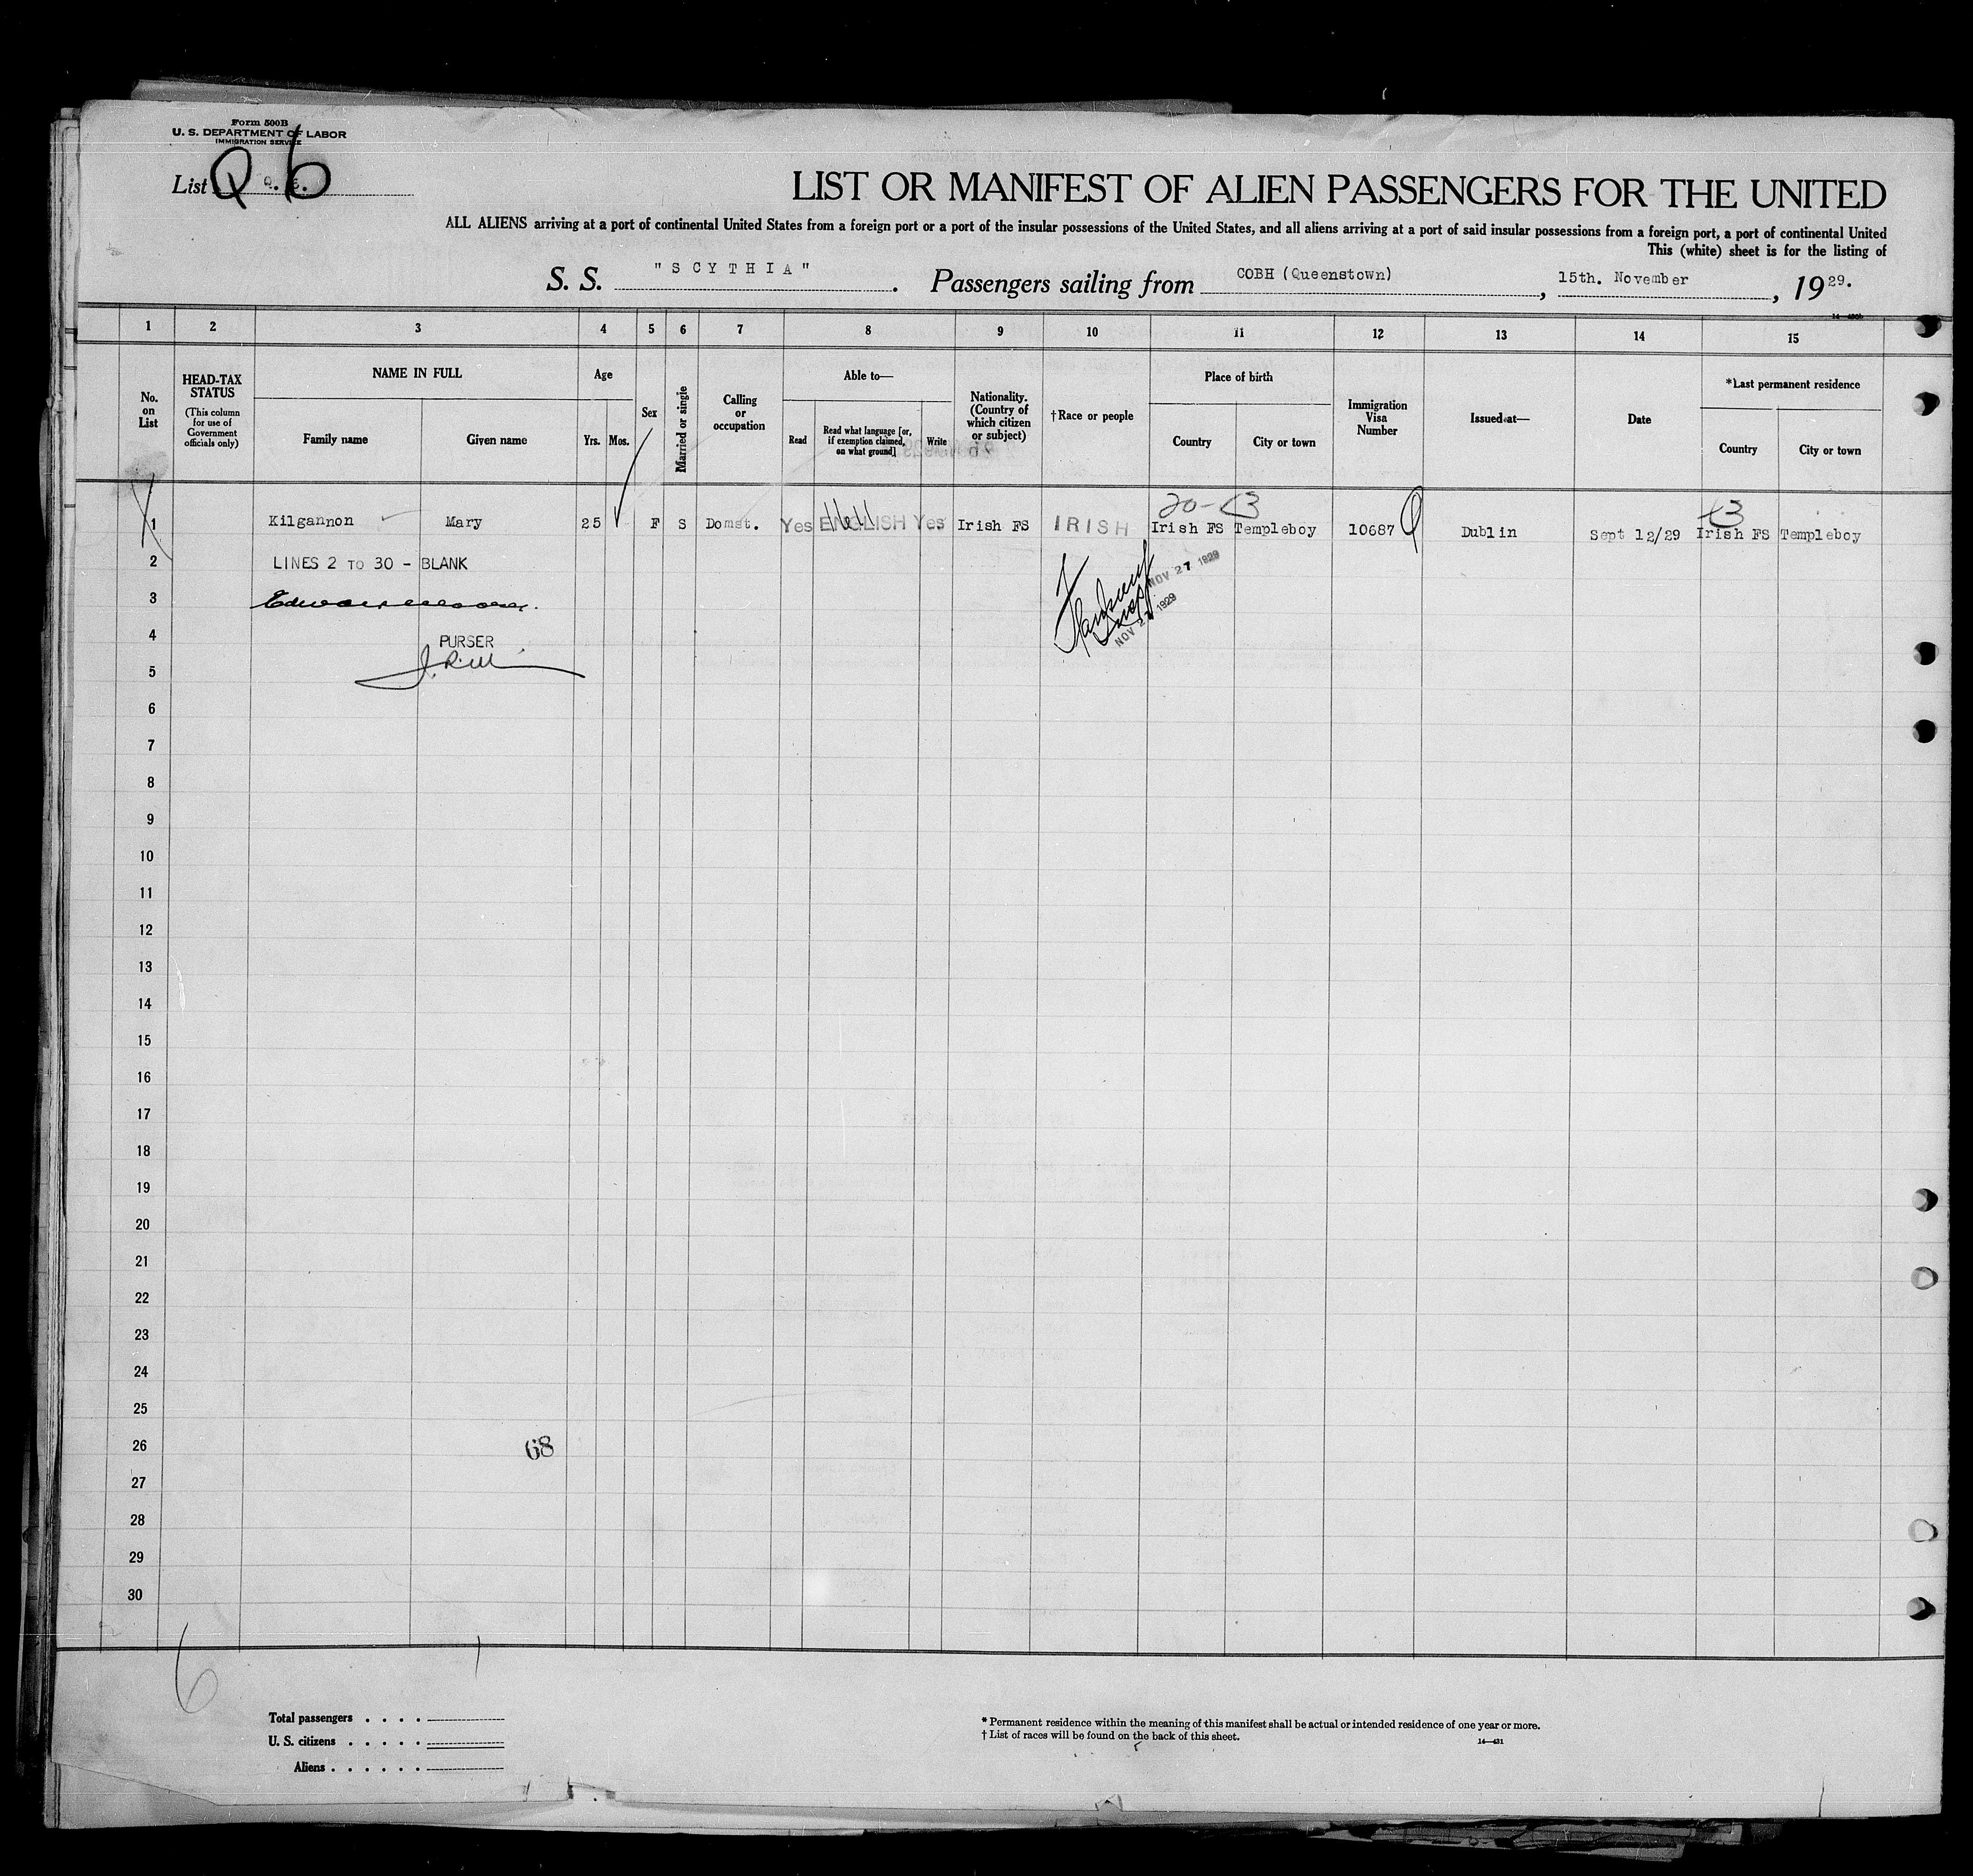 Form 500B
U. S. DEPARTMENT OF LABOR
IMMIGRATION SERVICE
List Q 6
LIST OR MANIFEST OF ALIEN PASSENGERS FOR THE UNITED
ALL ALIENS arriving at a port of continental United States from a foreign port or a port of the insular possessions of the United States, and all aliens arriving at a port of said insular possessions from a foreign port, a port of continental United
This (white) sheet is for the listing of
S. S. "SCYTHIA". Passengers sailing from COBH (Queenstown), 15th. November, 1929.
1 2 3 4 5 6 7 8 9 10 11 12 13 14 15
No. on List
HEAD-TAX STATUS
(This column for use of Government officials only)
NAME IN FULL
Family name
Given name
Age
Yrs. Mos.
Sex
Married or single
Calling or occupation
Able to—
Read
Read what language [or, if exemption claimed, on what ground]
Write
Nationality. (Country of which citizen or subject)
†Race or people
Place of birth
Country
City or town
Immigration Visa Number
Issued at—
Date
*Last permanent residence
Country
City or town
20-
1 Kilgannon Mary 25 F S Domst. Yes ENGLISH Yes Irish FS IRISH Irish FS Templeboy 10687 Dublin Sept 12/29 Irish FS Templeboy
2 LINES 2 TO 30 - BLANK
NOV 27 1929
3
NOV 27 1929
4 PURSER
5
6
7
8
9
10
11
12
13
14
15
16
17
18
19
20
21
22
23
24
25
26 68
27
28
29
30
6
Total passengers . . . .
U. S. citizens . . . . .
Aliens . . . . . .
* Permanent residence within the meaning of this manifest shall be actual or intended residence of one year or more.
† List of races will be found on the back of this sheet.
14—431